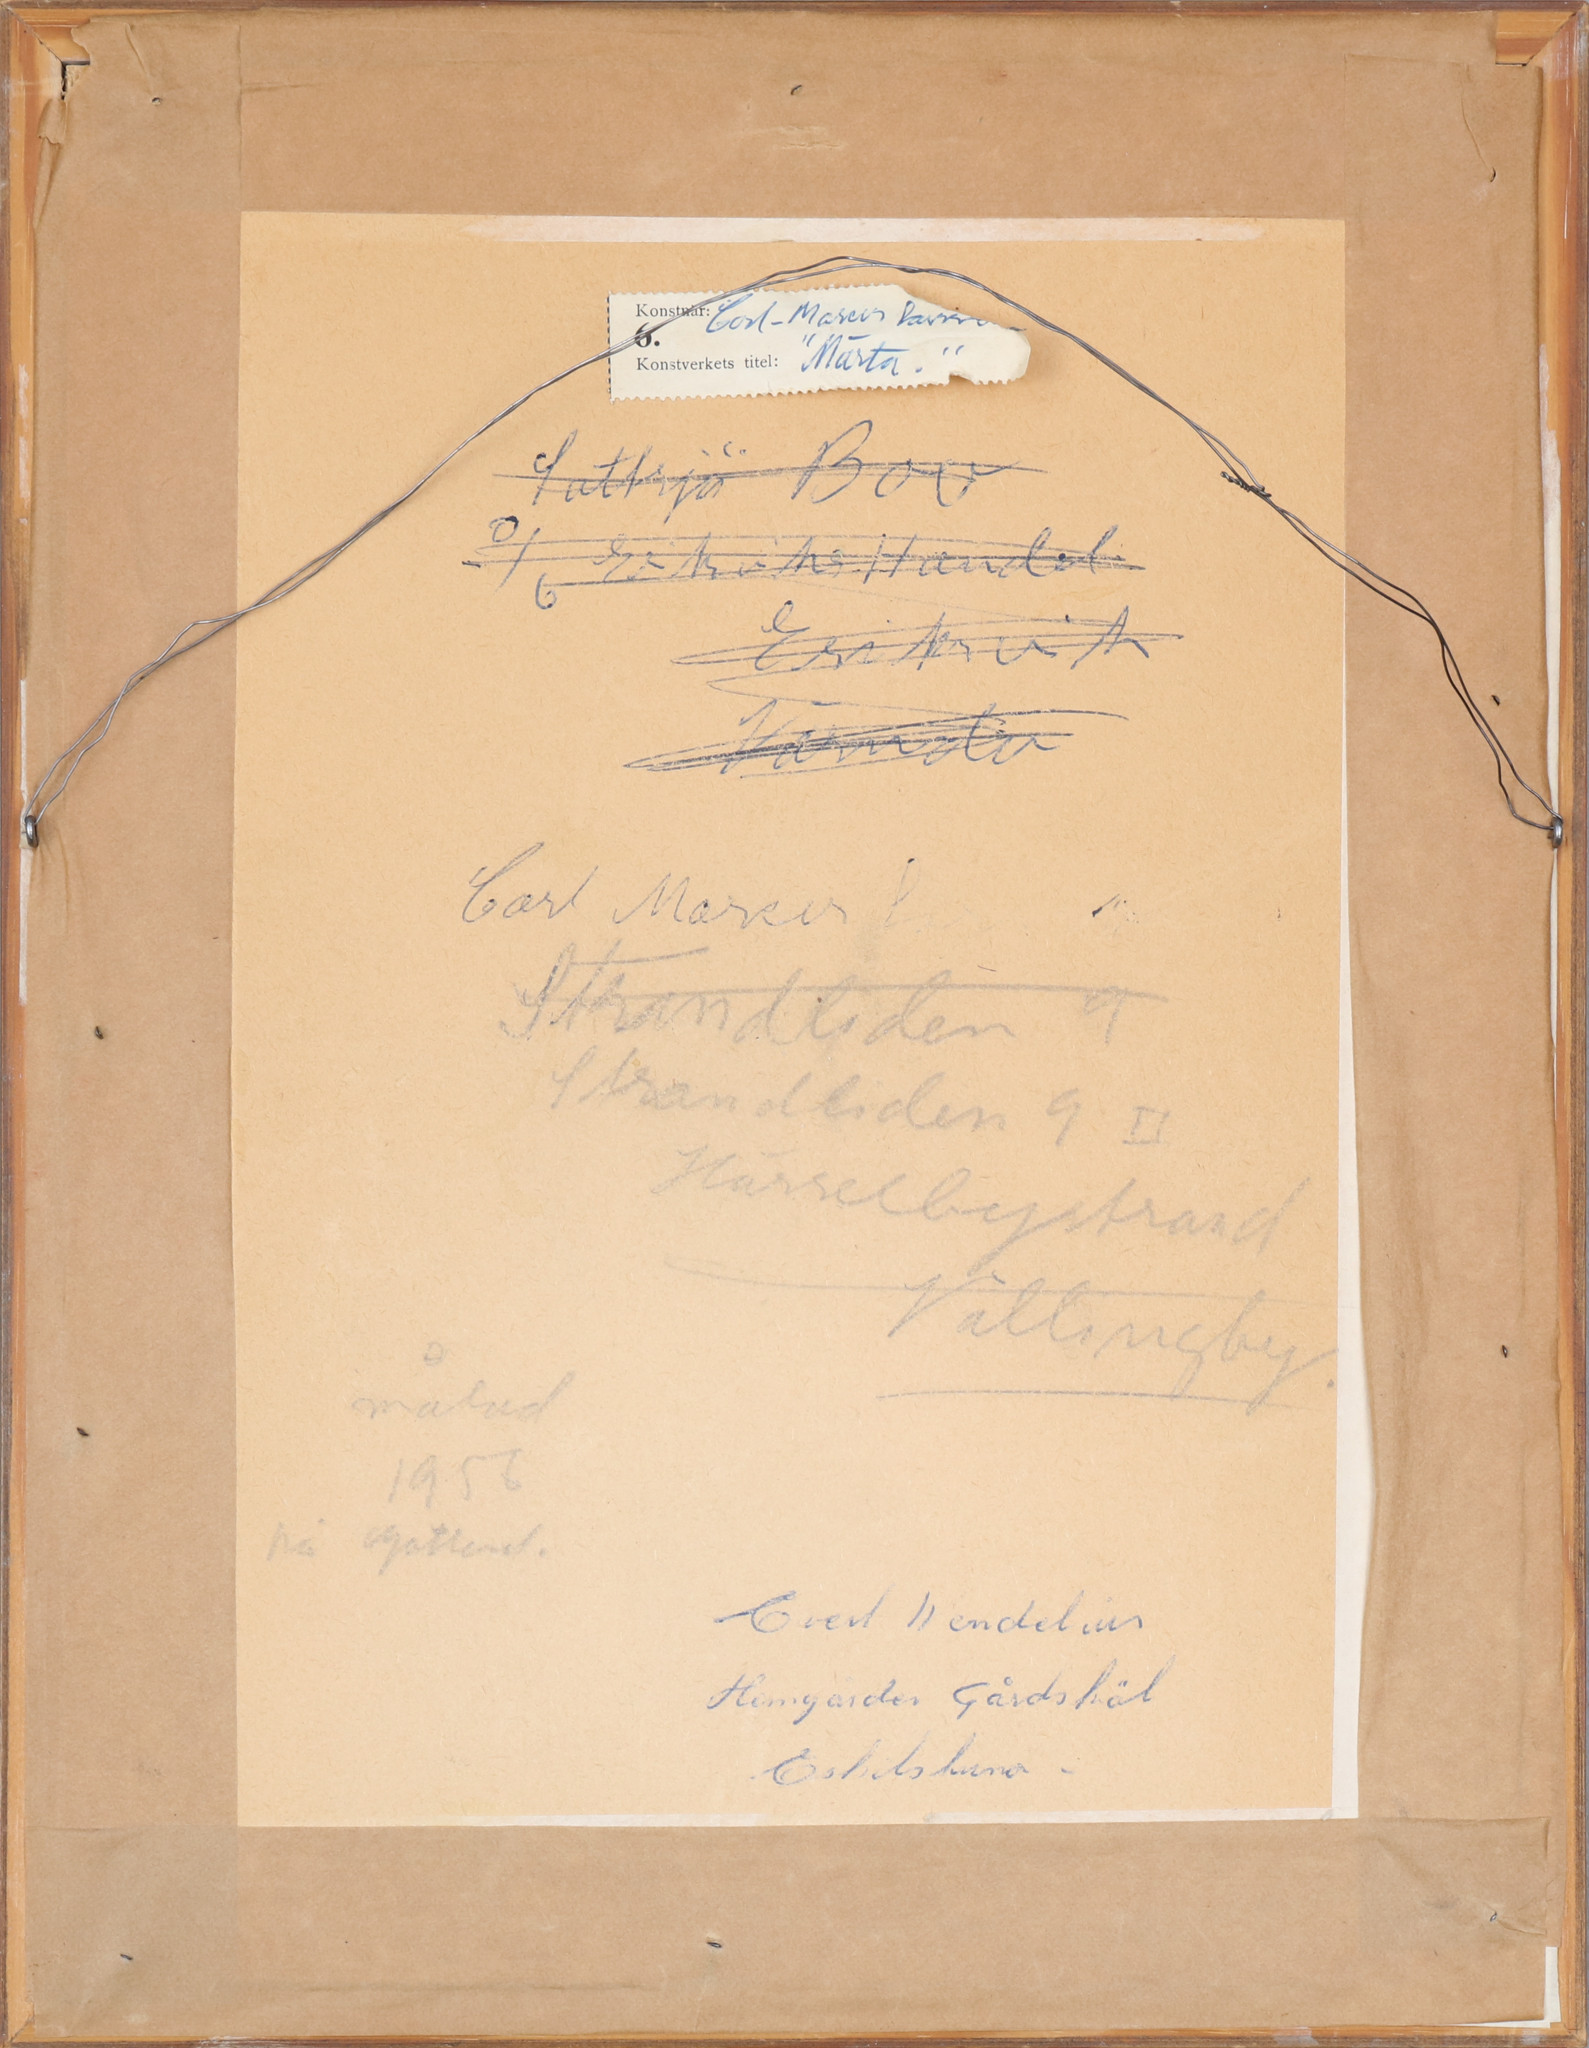 Konstnär: Carl-Marcus
6.
Konstverkets titel: "Märta."
Boo
Handel
Eriksvik
Värmdö
Carl Marcus
Strandliden 9
Strandliden 9 II
Hässelbystrand
Vällingby.
målad
1956
på Gotland.
Evert Wendelius
Hemgården Gårdskäl
Eskilstuna